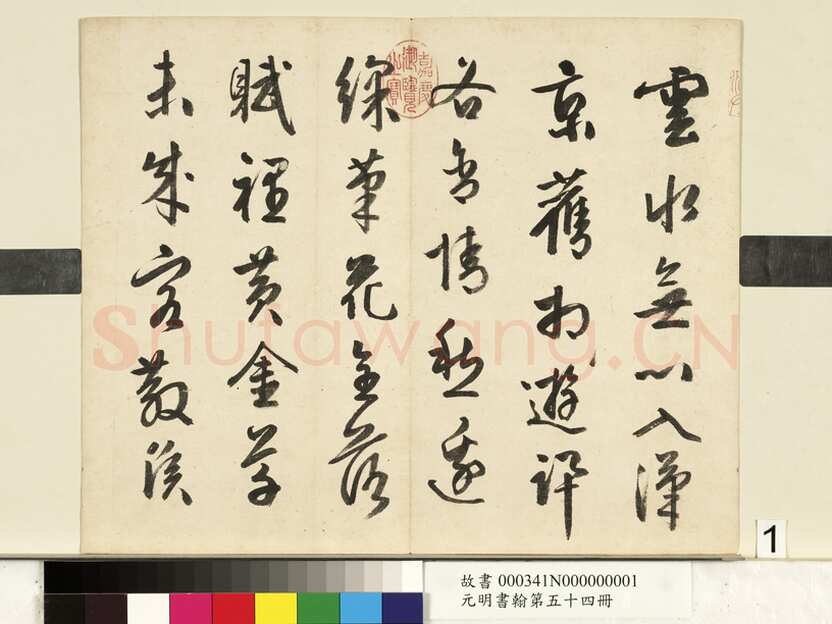 雲水無心入漢
京舊相遊
各含情愁邊
綵筆花全落
賦裡黃金草
未成客散侯
嘉慶御覽之寶
Shufawang.CN
1
故書 000341N000000001
元明書翰第五十四冊